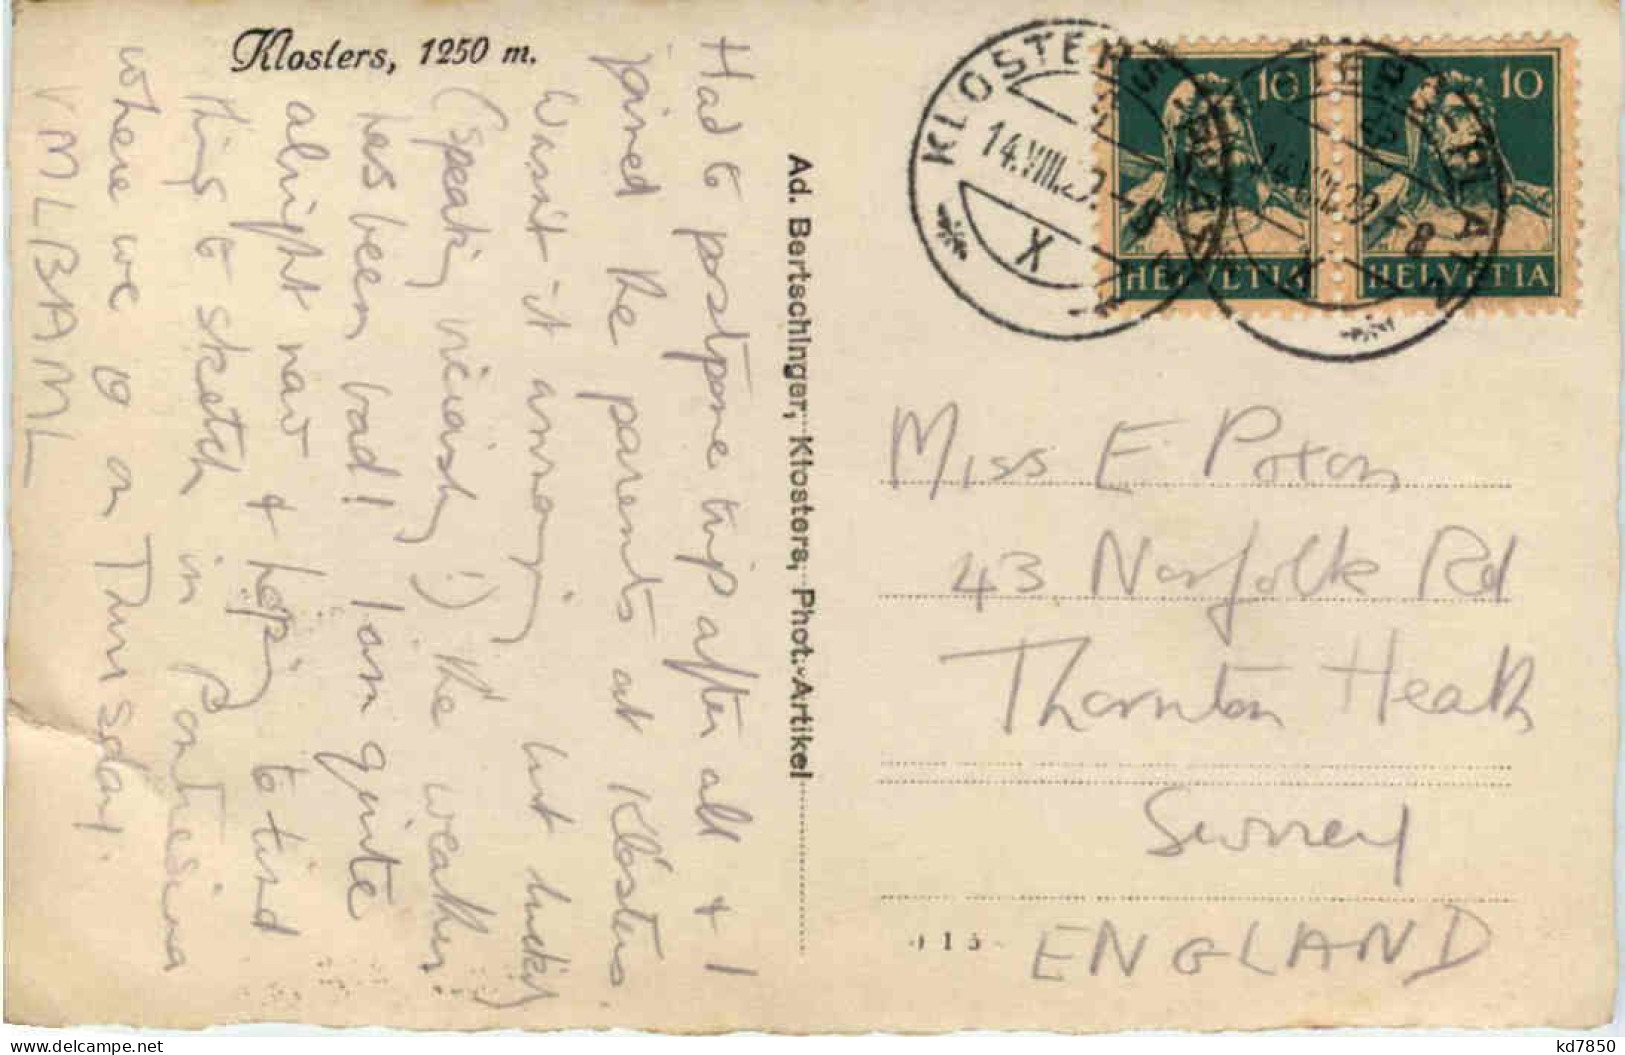 Klosters, 1250 m.
Had to postpone trip after all & I
joined the parents at Klosters.
Wasn't it annoying but luckily
(speaking viciously!) the weather
has been bad! I am quite
alright now & hoping to find
things to sketch in Pontresina
where we go on Thursday.
VMLBAML
Ad. Bertschinger, Klosters, Phot.-Artikel
KLOSTERS
14.VIII.29.-8
X
10
HELVETIA
KLOSTERS-PLATZ
14.VIII.29.-8
X
10
HELVETIA
Miss E
43 Norfolk Rd
Thornton Heath
Surrey
ENGLAND
kd7850